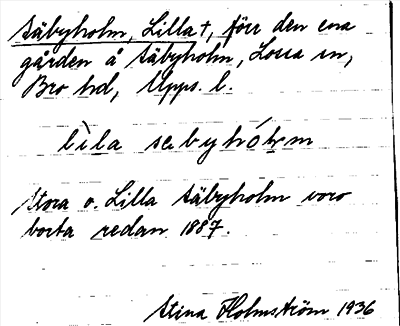 Säbyholm, Lilla †, förr den ena
gården å Säbyholm, Lossa sn,
Bro hd, Upps. l.
lìla sæbyhólm
Stora o. Lilla Säbyholm voro
borta redan 1887.
Stina Holmström 1936